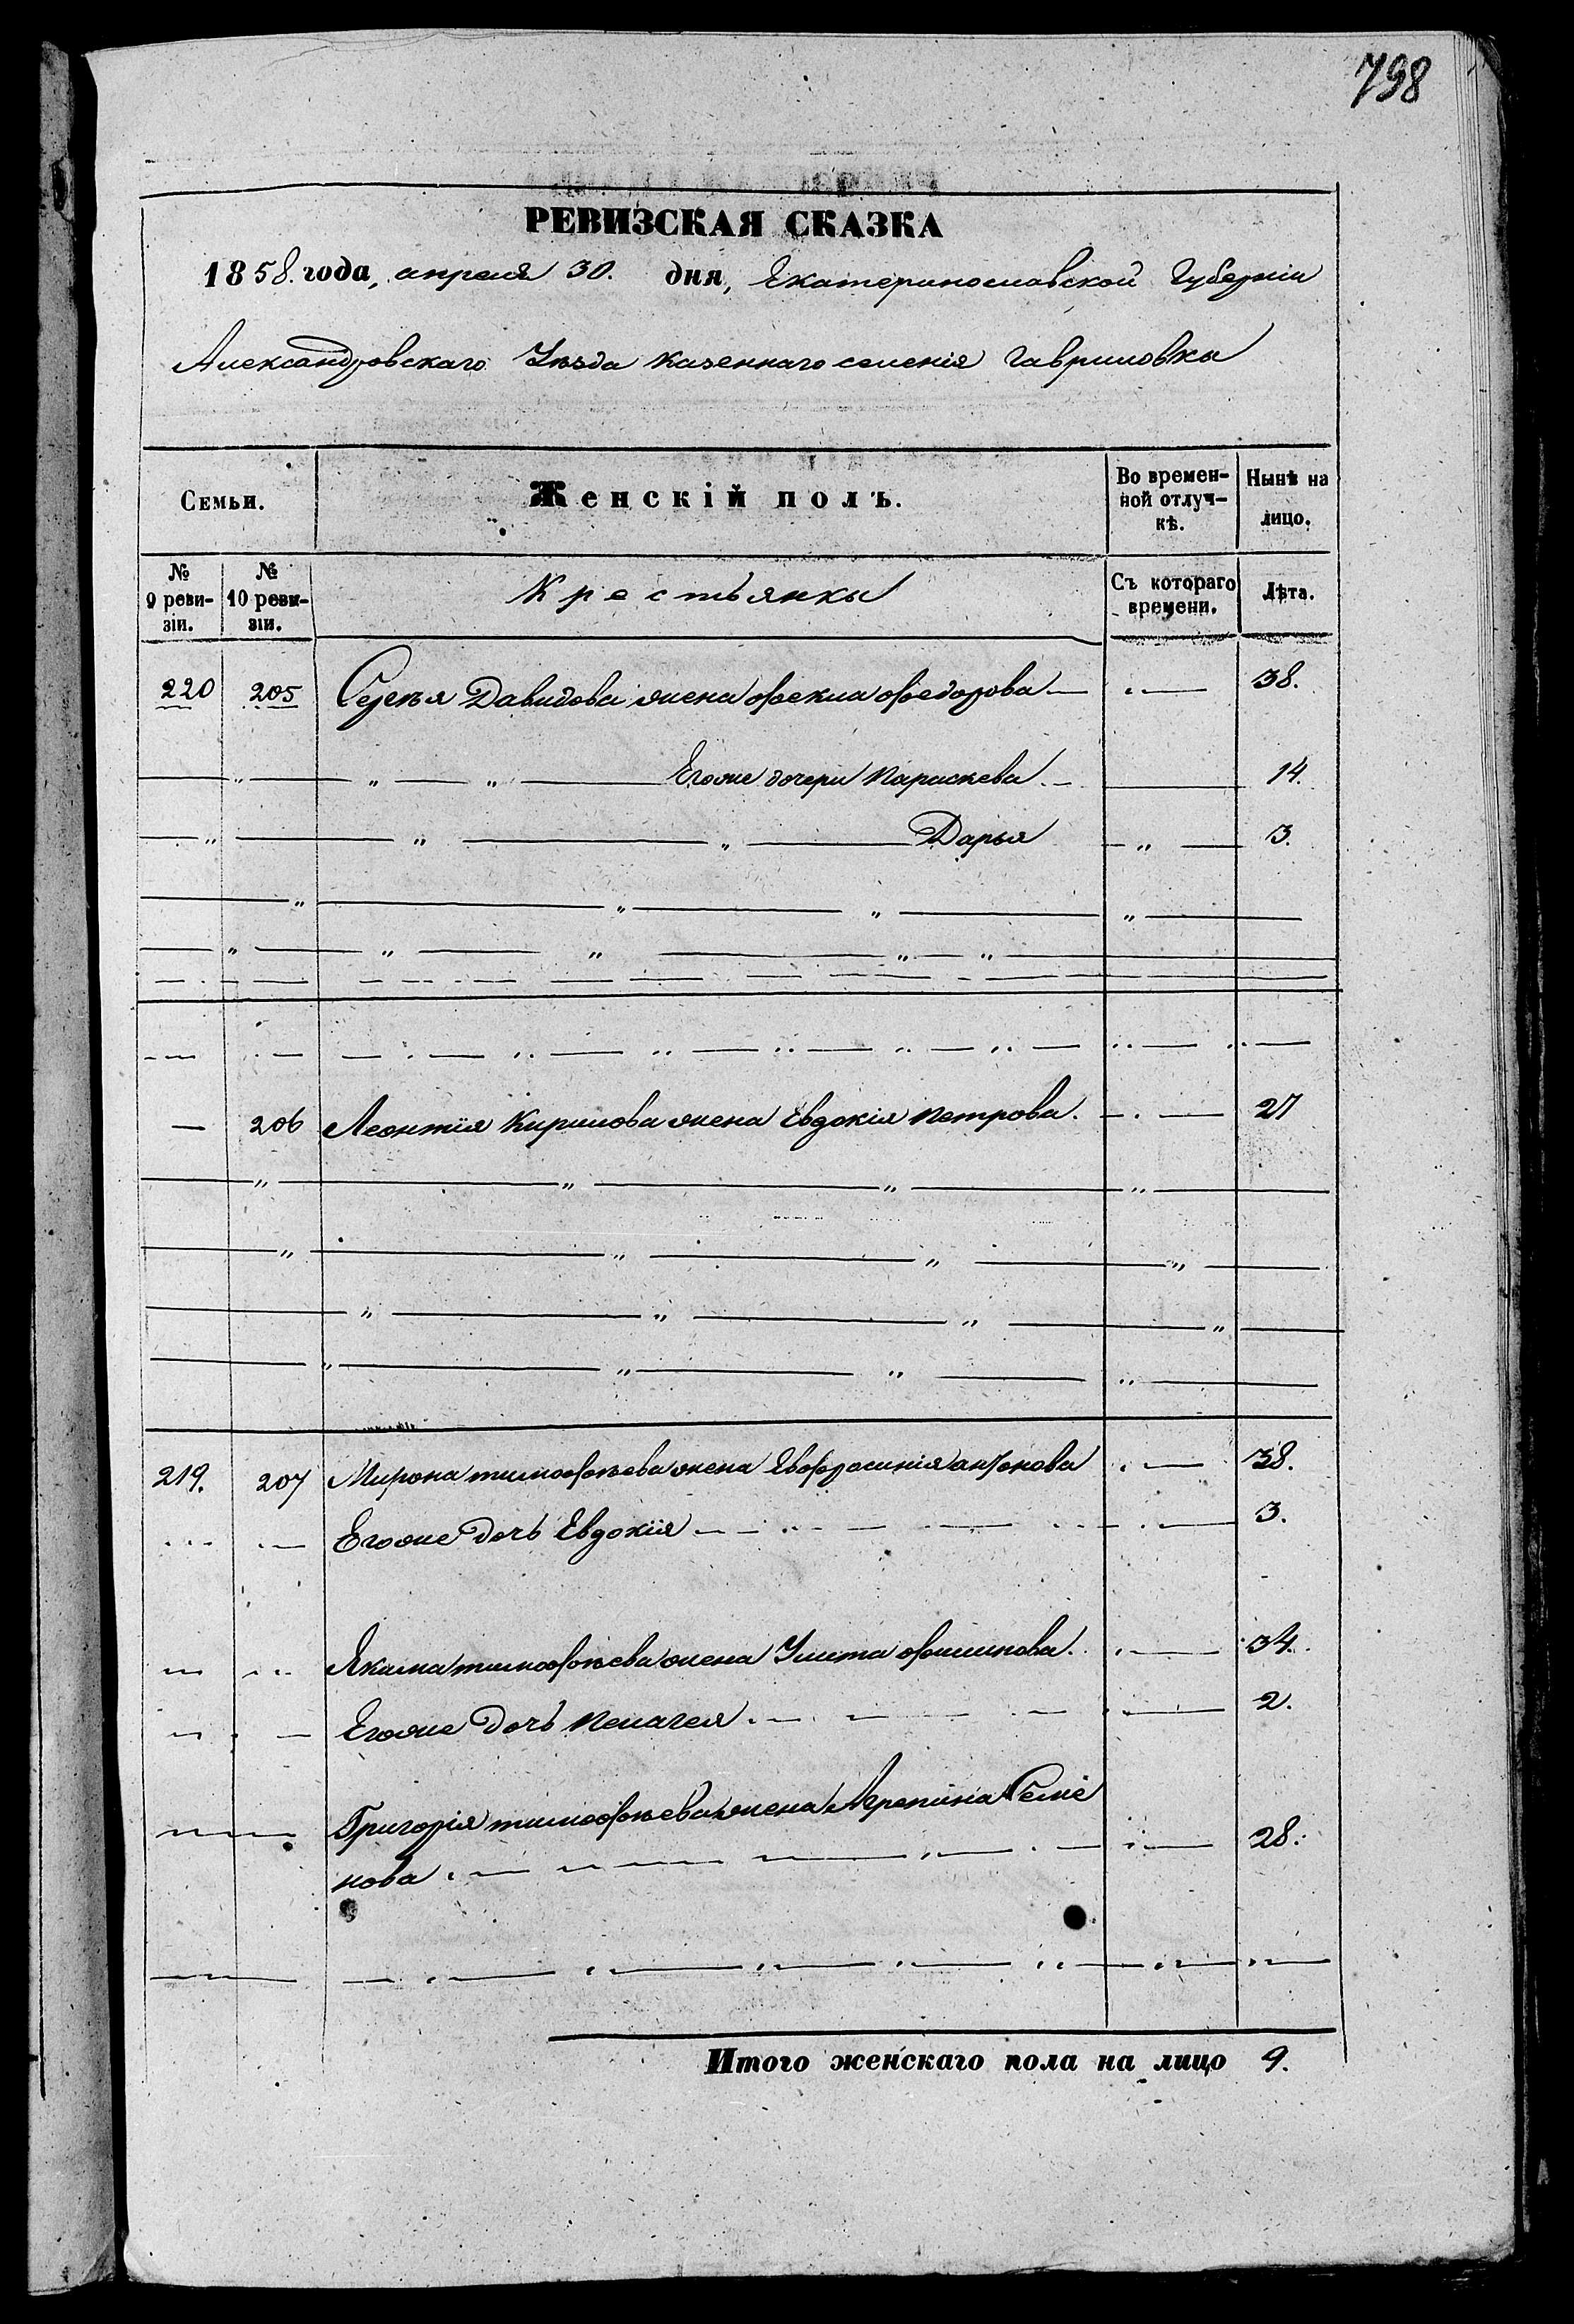 798
РЕВИЗСКАЯ СКАЗКА
1858. года, апреля 30. дня, Екатеринославской Губерніи
Александровскаго Уѣзда казеннаго селенія Гавриловки
Семьи. Женскій полъ. Во времен- Нынѣ на
ной отлуч- лицо.
кѣ.
№ № Крестьянки Съ котораго Лѣта.
9 реви- 10 реви- времени.
зіи. зіи.
220 205 Сергѣя Давидова жена Фекла Федорова — 38.
Егоже дочери Параскева 14.
Дарья 3.
— 206 Леонтія Кирилова жена Евдокія Петрова. 27
219. 207 Мирона тимофѣева жена Евфросинія антонова 38.
Егоже Дочь Евдокія 3.
Якима тимофѣева жена Улита Филипова. 34.
Егоже Дочь Пелагея 2.
Григорія тимофѣева жена Агрепина Семе
нова 28.
Итого женскаго пола на лицо 9.